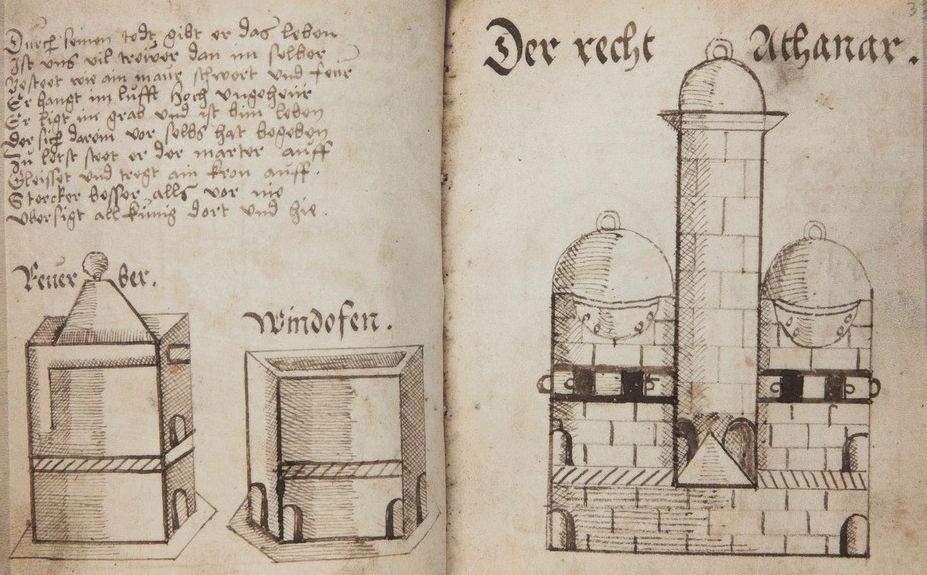 Durch seinen todt gibt er das leben
Ist uns vil trewer dan im selber
Besteet wie ain maur schwert und feur
Er hangt im lufft hoch ungeheür
Er ligt im grab und ist kim leben
Der sich darein vor selbs hat begeben
Zu letst steet er der marter auff
Gleisset und tregt ain kron auff.
Stercker besser alls vor nie
Ubersigt all künig dort und hie.
ber.
Windofen.
Der recht Athanar.